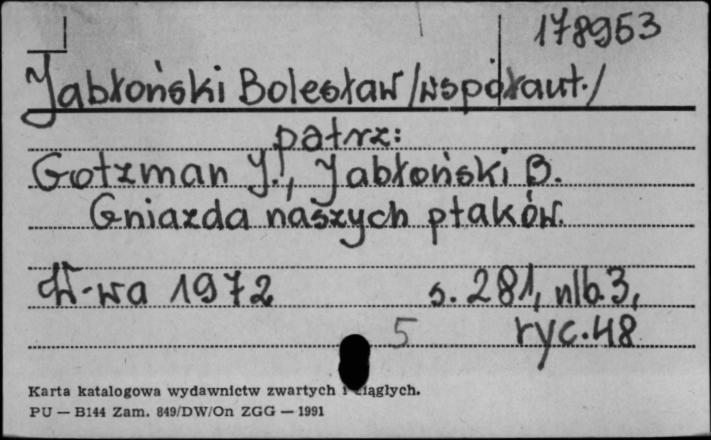 178953
Jabłoński Bolesław /współaut./
patrz:
Gotzman J., Jabłoński B.
Gniazda naszych ptaków.
W-wa 1972 s. 281, nlb. 3,
5 ryc. 48
Karta katalogowa wydawnictw zwartych i ciągłych.
PU — B144 Zam. 849/DW/On ZGG — 1991